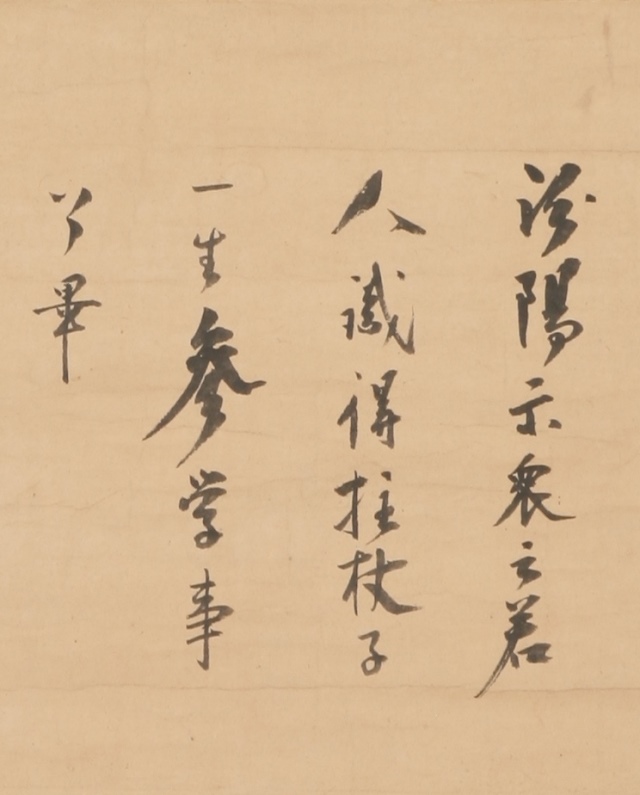 汾陽示衆云若
人識得拄杖子
一生参学事
了畢